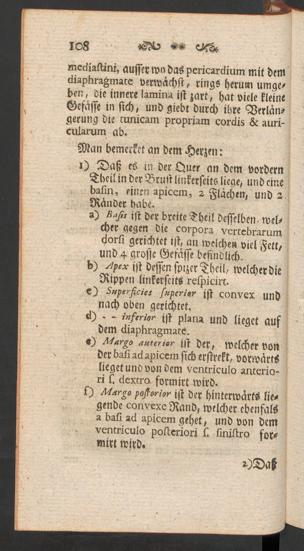 108
mediastini, ausser wo das pericardium mit dem
diaphragmate verwächst, rings herum umge-
ben, die innere lamina ist zart, hat viele kleine
Gefässe in sich, und giebt durch ihre Verlän-
gerung die tunicam propriam cordis & auri-
cularum ab.
Man bemecket an dem Herzen:
1) Daß es in der Quer an dem vordern
Theil in der Brust linkerseits liege, und eine
basin, einen apicem, 2 Flächen, und 2
Ränder habe.
a) Basis ist der breite Theil desselben, wel-
cher gegen die corpora vertebrarum
dorsi gerichtet ist, an welchen viel Fett,
und 4 grosse Gefässe befindlich.
b) Apex ist dessen spizer Theil, welcher die
Rippen linkerseits respicirt.
c) Superficies superior ist convex und
nach oben gerichtet.
d) - - inferior ist plana und lieget auf
dem diaphragmate.
e) Margo anterior ist der, welcher von
der basi ad apicem sich erstrekt, vorwärts
lieget und von dem ventriculo anterio-
ri s. dextro formirt wird.
f) Margo postorior ist der hinterwärts lie-
gende convexe Rand, welcher ebenfals
a basi ad apicem gehet, und von dem
ventriculo posteriori s. sinistro for-
mirt wird.
2) Daß